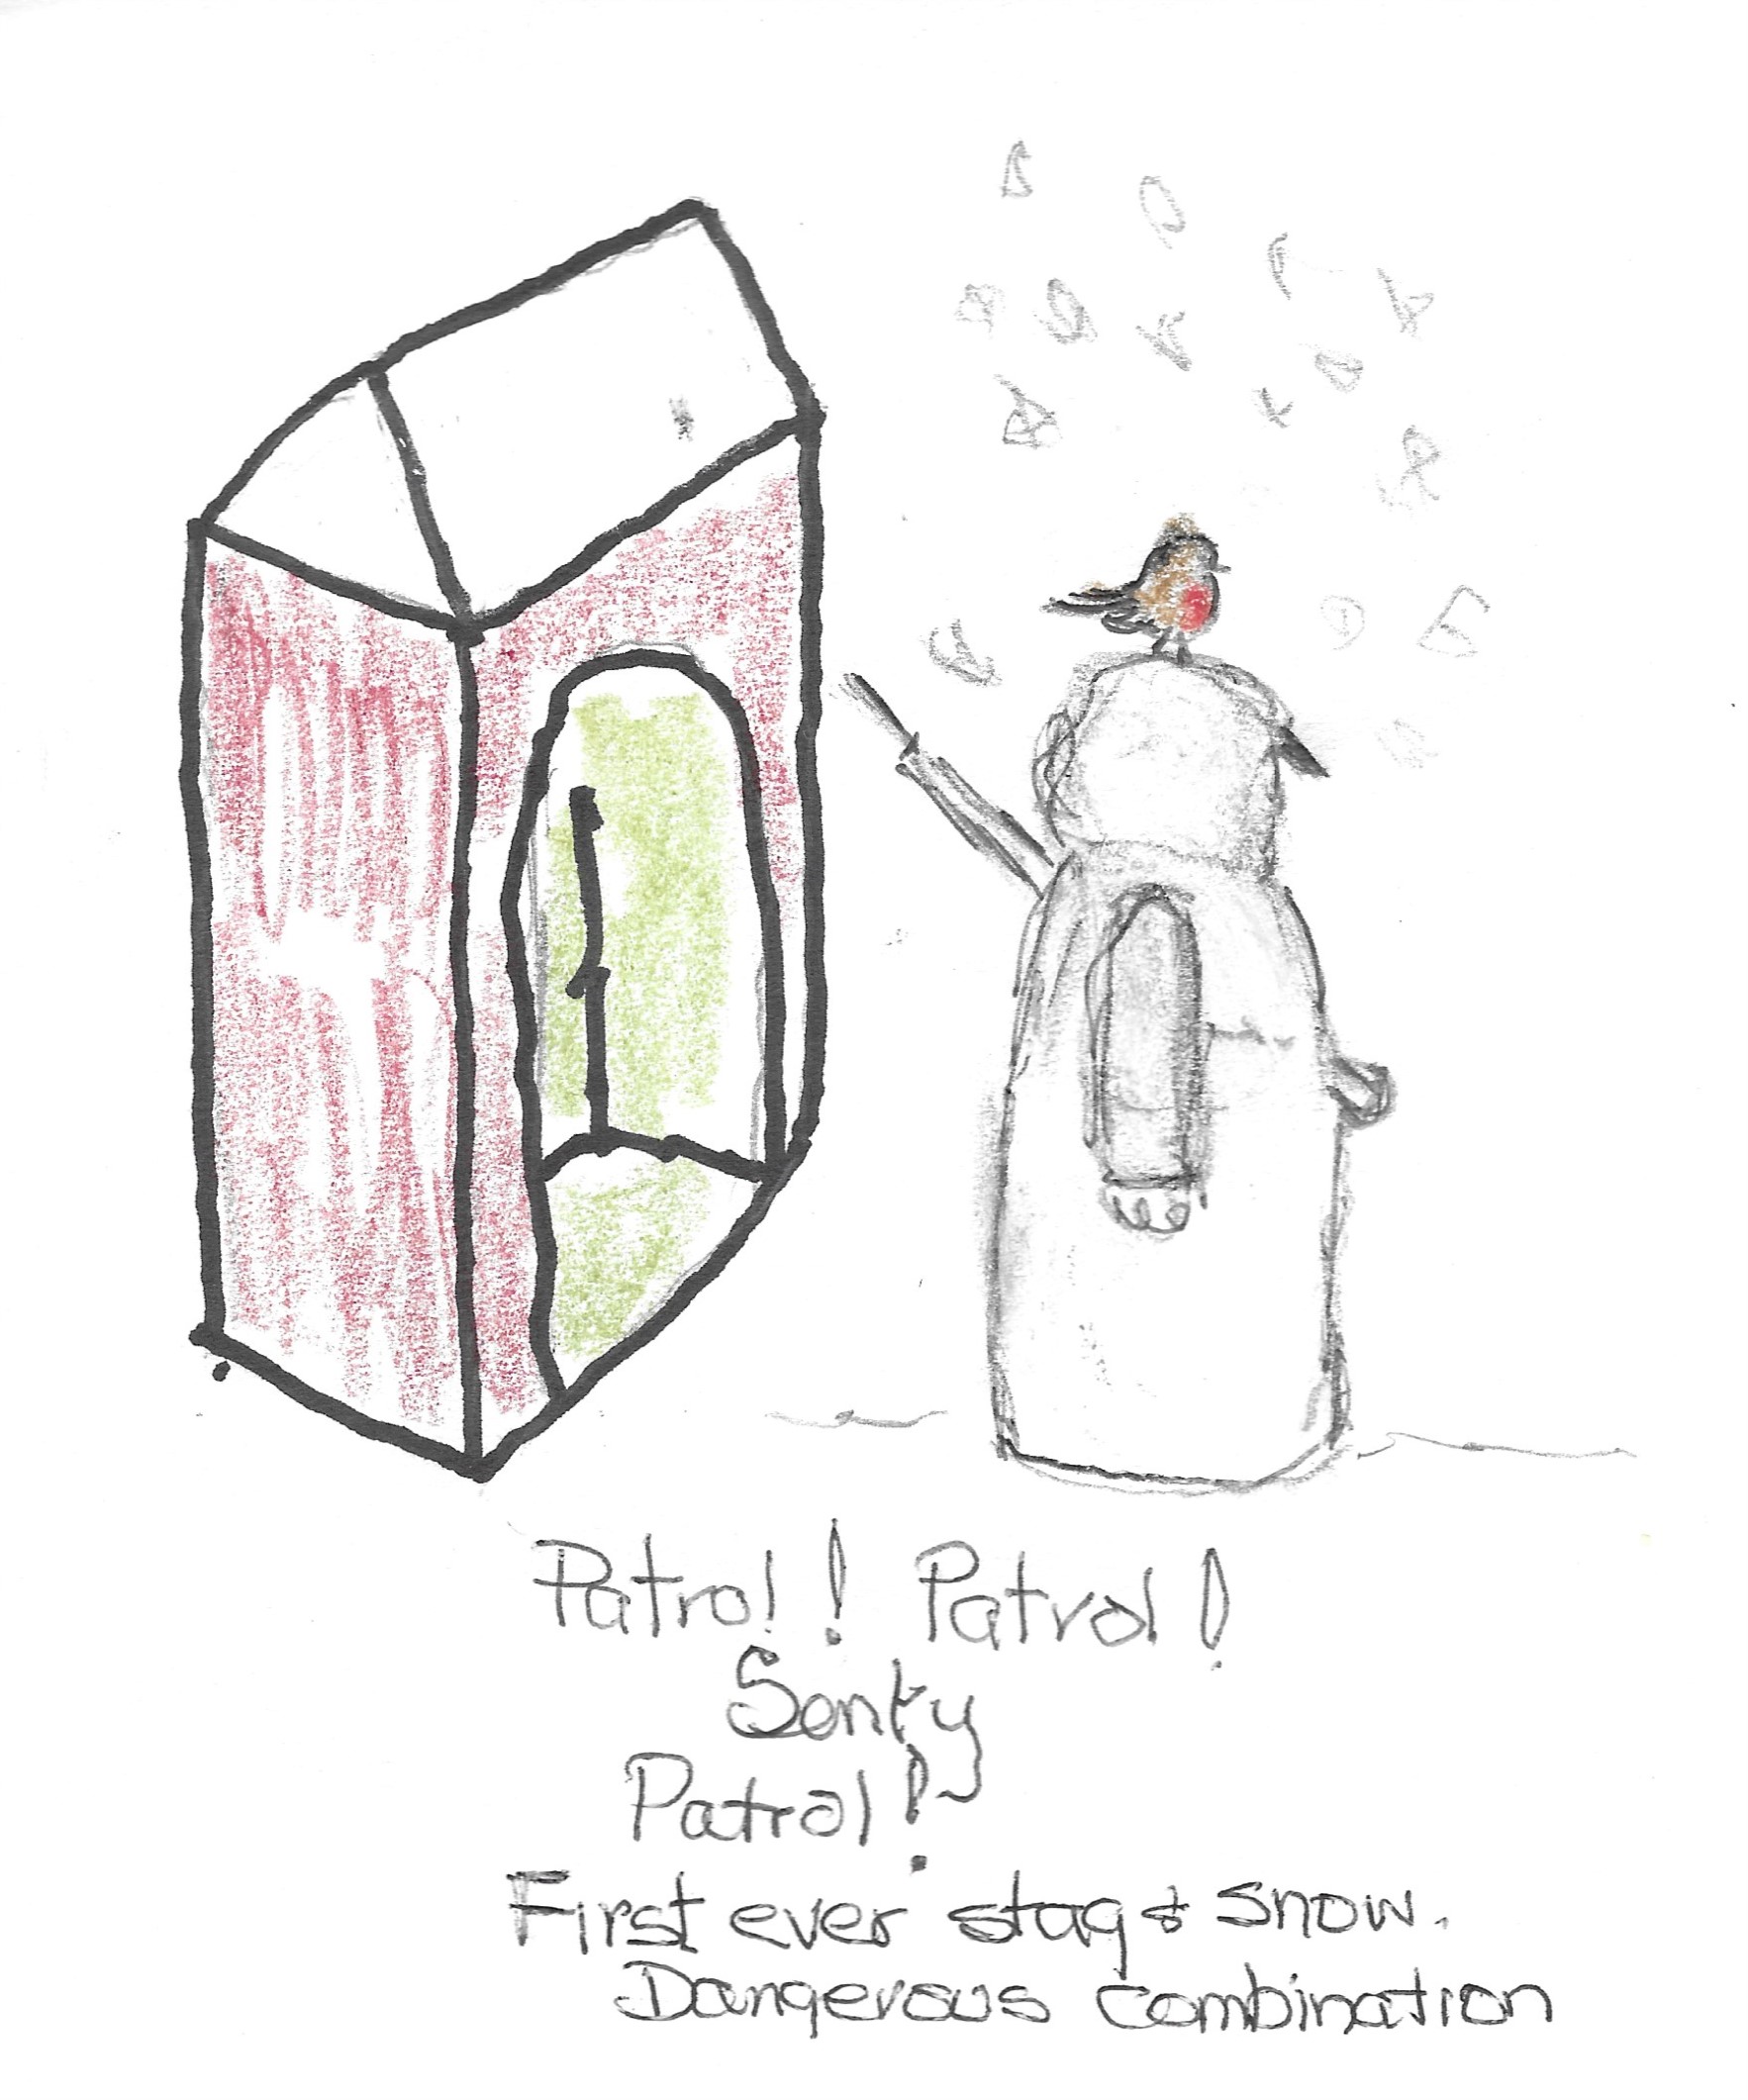 Patrol! Patrol!
Senty
Patrol!
First ever stag & snow.
Dangerous combination